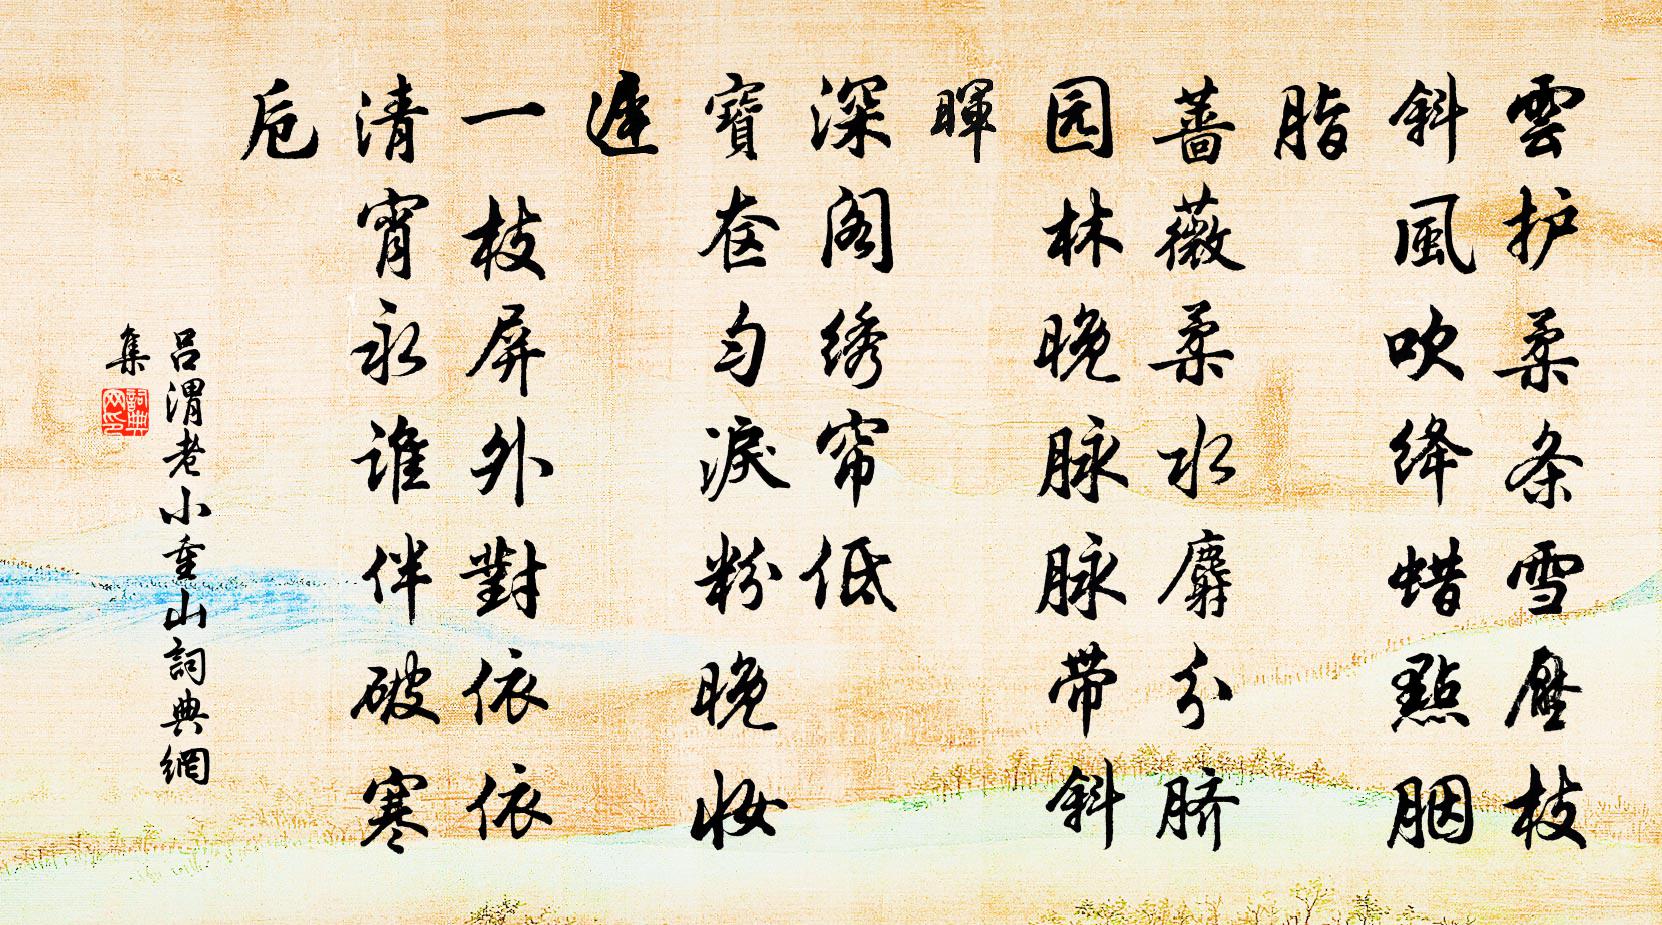 雲护柔条雪壓枝
斜風吹绛蜡點胭
脂
蔷薇柔水麝分脐
园林晚脉脉带斜
暉
深阁绣帘低
寳奁匀淚粉晚妆
遲
一枝屏外對依依
清宵永谁伴破寒
卮
吕渭老小重山詞典網
集
詞典
网印